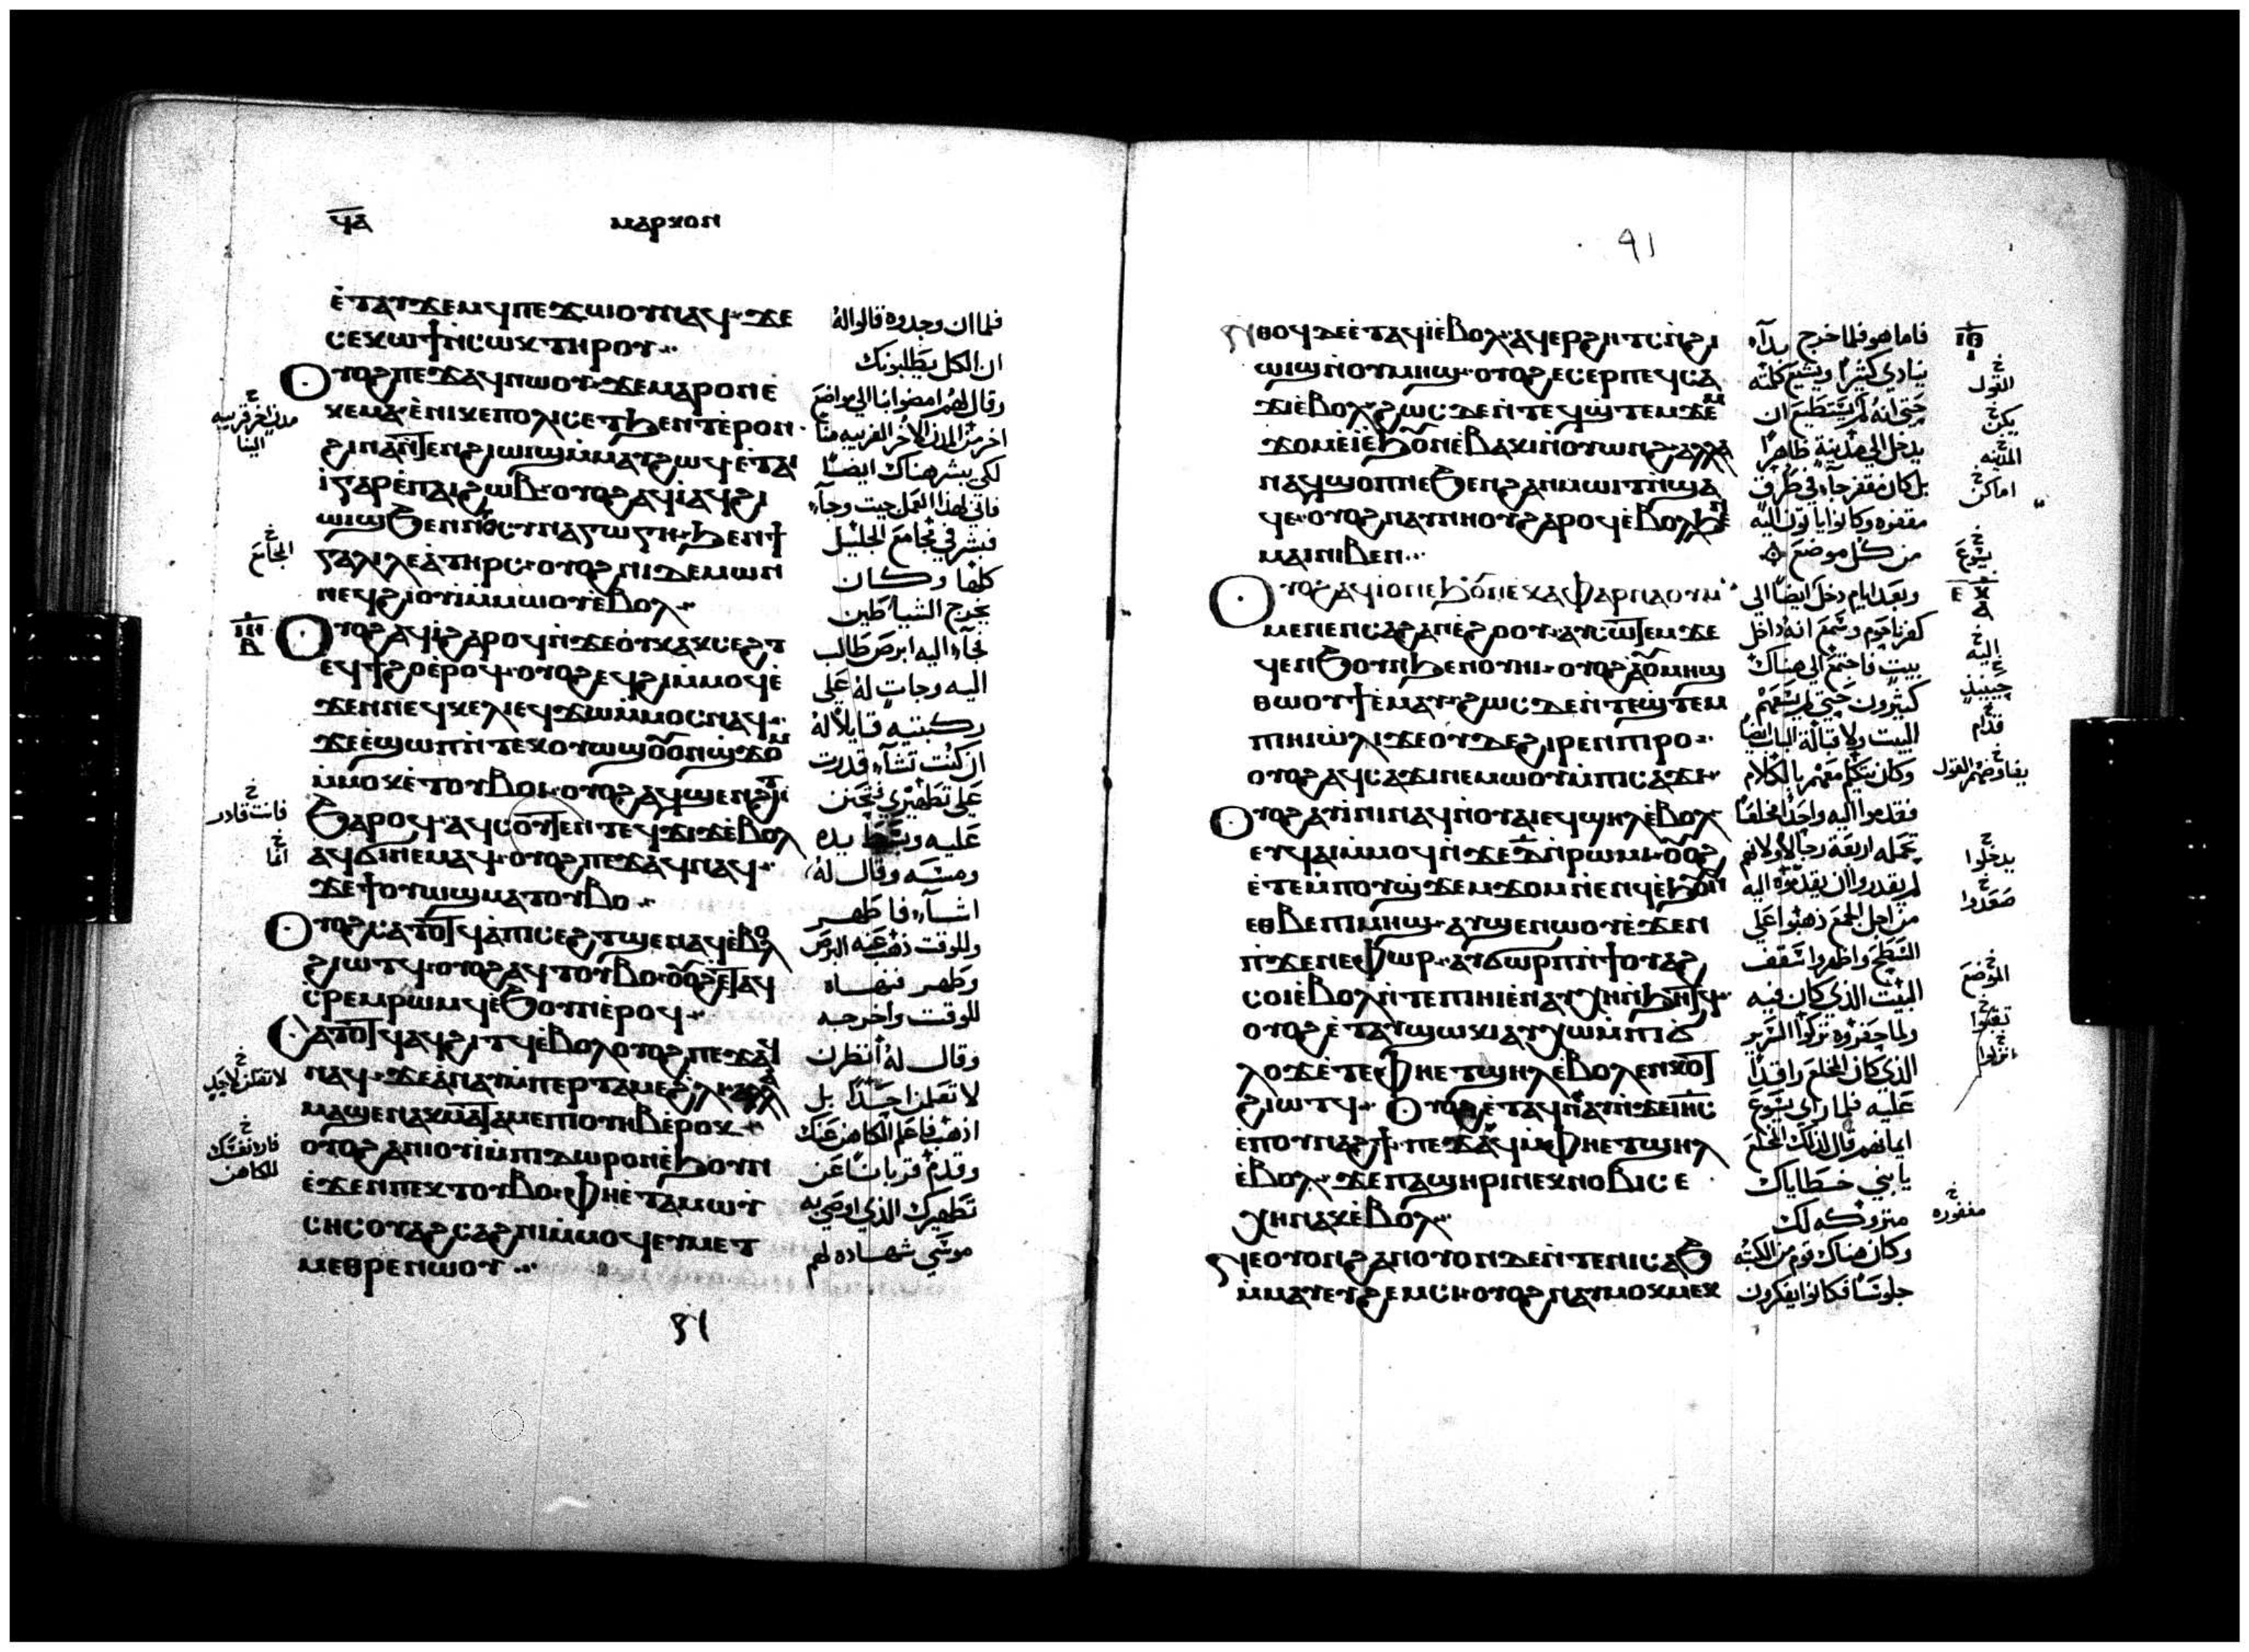 ϥⲁ
ⲙⲁⲣⲕⲟⲛ
ⲉ̀ⲧⲁⲩϫⲉⲙϥ ⲡⲉϫⲱⲟⲩ ⲛⲁϥ ϫⲉ
ⲥⲉⲕⲱϯ ⲛ̀ⲥⲱⲕ ⲧⲏⲣⲟⲩ
ⲟⲩⲟϩ ⲡⲉϫⲁϥ ⲛⲱⲟⲩ ϫⲉ ⲙⲁⲣⲟⲛ ⲉ̀
ⲕⲉⲙⲁ ⲉ̀ⲛⲓⲕⲉⲡⲟⲗⲓⲥ ⲉⲧϧⲉⲛⲧ ⲉ̀ⲣⲟⲛ
ϩⲓⲛⲁ ⲛ̀ⲧⲉⲛϩⲓⲱⲓϣ ⲙ̀ⲙⲁⲩ ϩⲱϥ ⲉ̀ⲧⲁⲓ
ⲓ̀ ⲅⲁⲣ ⲉ̀ⲡⲁⲓϩⲱⲃ ⲟⲩⲟϩ ⲁϥⲓ̀ ⲁϥϩⲓ
ⲱⲓϣ ϧⲉⲛ ⲛⲟⲩⲥⲩⲛⲁⲅⲱⲅⲏ ϧⲉⲛ ϯ
ⲅⲁⲗⲓⲗⲉⲁ̀ ⲧⲏⲣⲥ ⲟⲩⲟϩ ⲛⲓⲇⲉⲙⲱⲛ
ⲛⲉϥϩⲓⲟⲩⲓ̀ ⲙ̀ⲙⲱⲟⲩ ⲉ̀ⲃⲟⲗ
ⲟⲩⲟϩ ⲁϥⲓ̀ ϩⲁⲣⲟϥ ⲛ̀ϫⲉ ⲟⲩⲕⲁⲕⲥⲉϩⲧ
ⲉϥϯϩⲟ ⲉ̀ⲣⲟϥ ⲟⲩⲟϩ ⲉϥϩⲓ ⲙ̀ⲙⲟϥ ⲉ̀
ϫⲉⲛ ⲛⲉϥⲕⲉⲗⲓ ⲉϥϫⲱ ⲙ̀ⲙⲟⲥ ⲛⲁϥ
ϫⲉ ⲉ̀ϣⲱⲡ ⲛ̀ⲧⲉⲕⲟⲩⲱϣ ⲟⲩⲟⲛ ϣϫⲟⲙ
ⲙ̀ⲙⲟⲕ ⲉ̀ⲧⲟⲩⲃⲟⲓ ⲟⲩⲟϩ ⲁϥϣⲉⲛϩⲏⲧ
ϧⲁⲣⲟϥ ⲁϥⲥⲟⲩⲧⲉⲛ ⲧⲉϥϫⲓϫ ⲉ̀ⲃⲟⲗ
ⲁϥϭⲓ ⲛⲉⲙⲁϥ ⲟⲩⲟϩ ⲡⲉϫⲁϥ ⲛⲁϥ
ϫⲉ ϯⲟⲩⲱϣ ⲙⲁⲧⲟⲩⲃⲟ
ⲟⲩⲟϩ ⲥⲁⲧⲟⲧϥ ⲁ̀ ⲡⲓⲥⲉϩⲧ ϣⲉⲛⲁϥ ⲉ̀ⲃⲟⲗ
ϩⲓⲱⲧϥ ⲟⲩⲟϩ ⲁϥⲧⲟⲩⲃⲟ ⲟⲩⲟϩ ⲉ̀ⲧⲁϥ
ⲥ̀ⲣⲉⲙⲣⲱⲙ ⲉ̀ϧⲟⲩⲛ ⲉ̀ⲣⲟϥ
ⲥⲁⲧⲟⲧϥ ⲁϥϩⲓⲧϥ ⲉ̀ⲃⲟⲗ ⲟⲩⲟϩ ⲡⲉϫⲁϥ
ⲛⲁϥ ϫⲉ ⲁ̀ⲛⲁⲩ ⲙ̀ⲡⲉⲣⲧⲁⲙⲉ ϩⲗⲓ ⲁⲗⲗⲁ
ⲙⲁϣⲉⲛⲁⲕ ⲙⲁⲧⲁⲙⲉ ⲡⲓⲟⲩⲏⲃ ⲉ̀ⲣⲟⲕ
ⲟⲩⲟϩ ⲁⲛⲓⲟⲩⲓ̀ ⲙ̀ⲡⲓⲇⲱⲣⲟⲛ ⲉ̀ϧⲟⲩⲛ
ⲉ̀ϫⲉⲛ ⲡⲉⲕⲧⲟⲩⲃⲟ ⲫⲏ ⲉ̀ⲧⲁ ⲙⲱⲩ̀
ⲥⲏⲥ ⲟⲩⲁϩⲥⲁϩⲛⲓ ⲙ̀ⲙⲟϥ ⲉⲩⲙⲉⲧ
ⲙⲉⲑⲣⲉ ⲛⲱⲟⲩ
فلما ان وجدوه قالوا له
ان الكل يطلبونك
وقال لهم امضوا بنا الي مواضع
اخر من المدن الاخر القريبه منا
لكي يبشر هناك ايضا
فاني لهذا العمل جيت وجاء
فبشر في مجامع الجليل
كلها وكان
يخرج الشياطين
فجاء اليه ابرص طالب
اليه وجاث له علي
ركبتيه قايلا له
ان كنت تشاء قدرت
علي تطهيري فتحنن
عليه وبسط يده
ومسه وقال له
اشاء فاطهر
وللوقت ذهب عنه البرص
وطهر فنهاه
للوقت واخرجه
وقال له انظرن
لا تعلمن احدا بل
اذهب فاعلم الكاهن عنك
وقدم قربانا عن
تطهيرك الذي اوصي به
موسي شهاده لهم
مدن اخر قريبه
الينا
المجامع
ⲓⲏ
ⲃ
فانت قادر
لا تقلن لاحد
فاره نفسك
للكاهن
91
ⲛ̀ⲑⲟϥ ⲇⲉ ⲉ̀ⲧⲁϥⲓ̀ ⲉ̀ⲃⲟⲗ ⲁϥⲉⲣϩⲏⲧⲥ ⲛ̀ϩⲓ
ⲱⲓϣ ⲛ̀ⲟⲩⲙⲏϣ ⲟⲩⲟϩ ⲉ̀ⲥⲉⲣ ⲡⲉϥⲥⲁ
ϫⲓ ⲉ̀ⲃⲟⲗ ϩⲱⲥ ⲇⲉ ⲛ̀ⲧⲉϥϣ̀ⲧⲉⲙϫⲉⲙ
ϫⲟⲙ ⲉ̀ⲓ̀ ⲉ̀ϧⲟⲩⲛ ⲉ̀ⲃⲁⲕⲓ ⲛ̀ⲟⲩⲱⲛϩ ⲁⲗⲗⲁ
ⲛⲁϥϣⲟⲡ ⲡⲉ ϧⲉⲛ ϩⲁⲛⲙⲱⲓⲧ ⲛ̀ϣⲁ
ϥⲉ ⲟⲩⲟϩ ⲛⲁⲩⲛⲏⲟⲩ ϩⲁⲣⲟϥ ⲉ̀ⲃⲟⲗ ϧⲉⲛ
ⲙⲁⲓ ⲛⲓⲃⲉⲛ
ⲟⲩⲟϩ ⲁϥⲓ̀ ⲟⲛ ⲉ̀ϧⲟⲩⲛ ⲉ̀ⲕⲁⲫⲁⲣⲛⲁⲟⲩⲙ
ⲙⲉⲛⲉⲛⲥⲁ ϩⲁⲛⲉ̀ϩⲟⲟⲩ ⲁⲩⲥⲱⲧⲉⲙ ϫⲉ
ϥⲉⲛϧⲟⲩⲛ ϧⲉⲛ ⲟⲩⲏⲓ ⲟⲩⲟϩ ⲁⲟⲩⲙⲏϣ
ⲑⲱⲟⲩϯ ⲉ̀ⲙⲁⲩ ϩⲱⲥ ⲇⲉ ⲛ̀ⲧⲉϣ̀ⲧⲉⲙ
ⲡⲓⲏⲓ ⲱⲗⲓ ϫⲉ ⲟⲩⲇⲉ ϩⲓⲣⲉⲛ ⲡⲓⲣⲟ
ⲟⲩⲟϩ ⲁϥⲥⲁϫⲓ ⲛⲉⲙⲱⲟⲩ ⲙ̀ⲡⲓⲥⲁϫⲓ
ⲟⲩⲟϩ ⲁⲩⲓ̀ⲛⲓ ⲛⲁϥ ⲛ̀ⲟⲩⲁⲓ ⲉϥϣⲏⲗ ⲉ̀ⲃⲟⲗ
ⲉⲩϥⲁⲓ ⲙ̀ⲙⲟϥ ⲛ̀ϫⲉ ⲇ̅ ⲛ̀ⲣⲱⲙⲓ ⲟⲩⲟϩ
ⲉ̀ⲧⲉⲙ̀ⲡⲟⲩϣ̀ϫⲉⲙϫⲟⲙ ⲛ̀ⲉⲛϥ ⲉ̀ϧⲟⲩⲛ
ⲉⲑⲃⲉ ⲡⲓⲙⲏϣ ⲁⲩϣⲉⲛⲱⲟⲩ ⲉ̀ϫⲉⲛ
ⲡ̀ϫⲉⲛⲉⲫⲱⲣ ⲁⲩϭⲱⲣⲡ ⲛ̀ϯⲟⲩⲁϩ
ⲥⲟⲓ ⲉ̀ⲃⲟⲗ ⲛ̀ⲧⲉ ⲡⲓⲏⲓ ⲉ̀ⲛⲁϥⲭⲏ ⲛ̀ϧⲏⲧϥ
ⲟⲩⲟϩ ⲉ̀ⲧⲁⲩϣⲱⲕⲓ ⲁⲩⲭⲱ ⲙ̀ⲡⲓϭ
ⲗⲟϫ ⲉ̀ⲧⲉ ⲫⲏ ⲉⲧϣⲏⲗ ⲉ̀ⲃⲟⲗ ⲉⲛⲕⲟⲧ
ϩⲓⲱⲧϥ ⲟⲩⲟϩ ⲉ̀ⲧⲁϥⲛⲁⲩ ⲛ̀ϫⲉ ⲓⲏⲥ
ⲉ̀ⲡⲟⲩⲛⲁϩϯ ⲡⲉϫⲁϥ ⲙ̀ⲫⲏ ⲉⲧϣⲏⲗ
ⲉ̀ⲃⲟⲗ ϫⲉ ⲡⲁϣⲏⲣⲓ ⲛⲉⲕⲛⲟⲃⲓ ⲥⲉ
ⲭⲏ ⲛⲁⲕ ⲉ̀ⲃⲟⲗ
ⲛⲉ ⲟⲩⲟⲛ ϩⲁⲛⲟⲩⲟⲛ ⲇⲉ ⲛ̀ⲧⲉ ⲛⲓⲥⲁϧ
ⲙ̀ⲙⲁⲩ ⲉⲩϩⲉⲙⲥⲓ ⲟⲩⲟϩ ⲛⲁⲩⲙⲟⲕⲙⲉⲕ
فاما هو فلما خرج بدا
ينادي كثيرا ويشيع كلمته
حتي انه لم يستطيع ان
يدخل الي مدينة ظاهرا
بل كان في طرق
مقفره وكانوا ياتون اليه
من كل موضع
وبعد ايام دخل ايضا الي
كفرناحوم وسمع انه داخل
بيت فاجتمع الي هناك
كثيرون حتي لم يسعهم
البيت ولا قبالة الباب ايضا
وكان يتكلم معهم بالكلام
فقدموا اليه واحدا مخلعا
يحمله اربعة رجال ولانهم
لم يقدروا ان يقدموه اليه
من اجل الجمع ذهبوا علي
السطح واظهروا سقف
البيت الذي كان فيه
ولما حفروه تركوا السرير
الذي كان المخلع راقدا
عليه فلما راي يسوع
ايمانهم قال لذلك المخلع
يا بني خطاياك
متروكه لك
وكان هناك قوم من الكتبه
جلوسا فكانوا يفكرون
ⲓⲑ
القول
يكن
المدينه
اماكن
يسوع
اليه
حينيذ
قدام
يفاوضهم القول
يدخلوا
صعدوا
الموضع
نقبوا
مغفوره